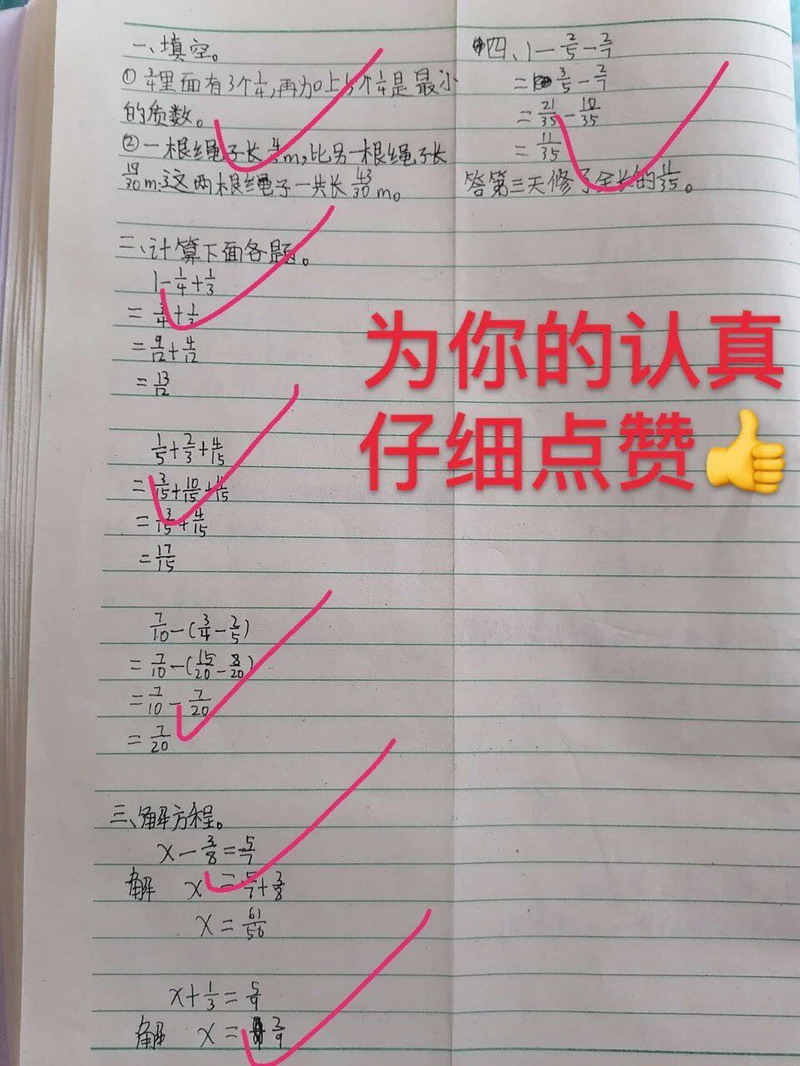 一、填空。
①3/4里面有3个1/4,再加上5个1/4是最小
的质数。
②一根绳子长4/5m,比另一根绳子长
19/30m,这两根绳子一共长43/30m。
二、计算下面各题。
1-1/4+1/3
=3/4+1/3
=9/12+4/12
=13/12
1/5+2/3+4/15
=3/15+10/15+4/15
=13/15+4/15
=17/15
7/10-(3/4-2/5)
=7/10-(15/20-8/20)
=7/10-7/20
=7/20
三、解方程。
x-3/8=5/7
解 x=5/7+3/8
x=61/56
x+1/3=5/9
解 x=2/9
四、1-2/5-2/7
=3/5-2/7
=21/35-10/35
=11/35
答第三天修了全长的11/35。
为你的认真
仔细点赞👍